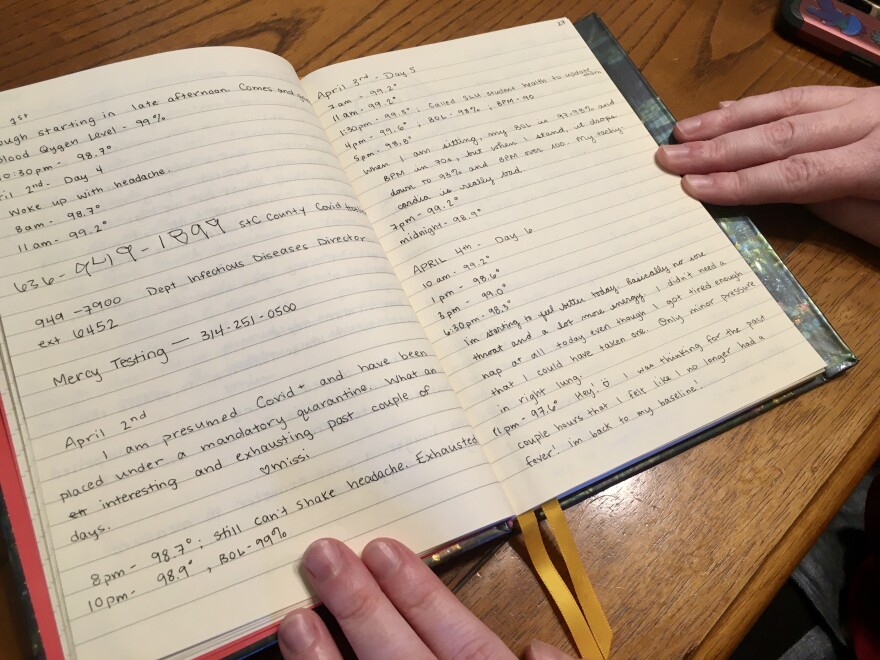 1st
ough starting in late afternoon. Comes and
Blood Oxygen Level - 99%
10:30pm - 98.7°
ril 2nd - Day 4
Woke up with headache.
8am - 98.7°
11am - 99.2°
636-949-1899 StC County Covid
949-7900 Dept Infectious Diseases Director
ext 6452
Mercy Testing — 314-251-0500
April 2nd
I am presumed Covid+ and have been
placed under a mandatory quarantine. What an
interesting and exhausting past couple of
days. ♡missi
8pm - 98.7°; still can't shake headache. Exhausted
10pm - 98.9°, BOL - 99%
27
April 3rd - Day 5
7am - 99.2°
11am - 99.2°
1:30pm - 99.5°; Called SLU student health to update
4pm - 99.6°; BOL - 98%; BPM - 90
5pm - 98.8°
When I am sitting, my BOL is 97-98% and
BPM in 70s, but when I stand, it drops
down to 93% and BPM over 100. My tachy-
cardia is really bad
7pm - 99.2°
midnight - 98.9°
APRIL 4th - Day 6
10am - 99.2°
1pm - 98.6°
3pm - 99.0°
6:30pm - 98.3°
im starting to feel better today - basically no sore
throat and a lot more energy. I didn't need a
nap at all today even though I got tired enough
that I could have taken one. Only minor pressure
in right lung.
11pm - 97.6° Hey! I was thinking for the past
couple hours that I felt like I no longer had a
fever! im back to my baseline!